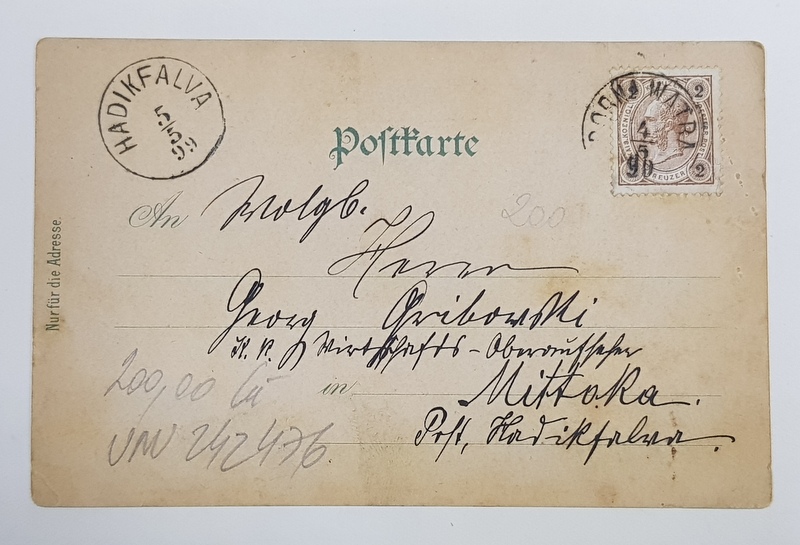 HADIKFALVA
5/5
99
DORNA WATRA
4/5
99
2 2
2
KREUZER
Postkarte
An Wolgb.
200
Herrn
Georg Gribowski
K. k. Wirthschafts-Oberaufseher
200,00
in Mittoka.
Post, Hadikfalva.
242476
Nur für die Adresse.